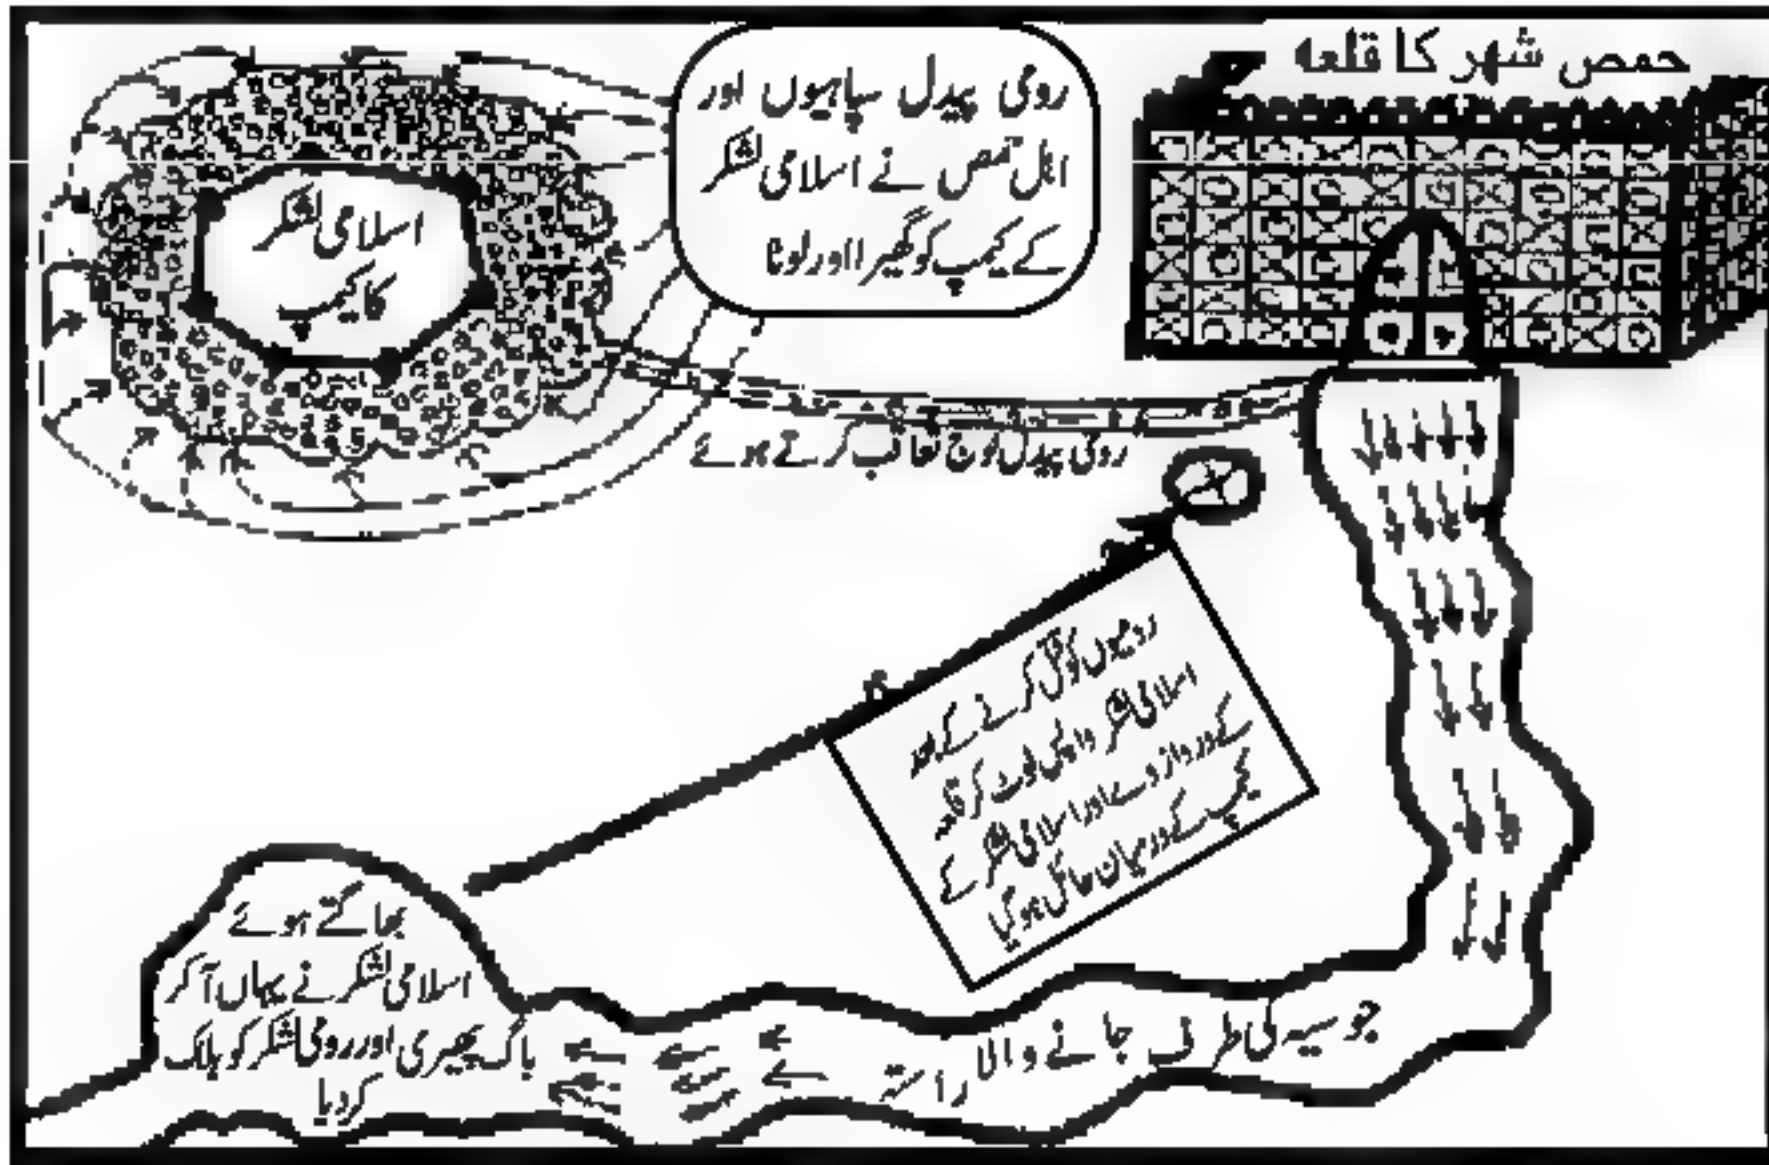 حمص شهر کا قلعه
رومی پیدل سپاہیوں اور
اہل حمص نے اسلامی لشکر
کے کیمپ کو گھیرا اور لوٹا
اسلامی لشکر
کا کیمپ
رومی پیدل فوج تعاقب کرتے ہوئے
رومیوں کو قتل کرنے کے بعد
اسلامی لشکر واپس لوٹ کر قلعہ
کے دروازے اور اسلامی لشکر کے
کیمپ کے درمیان حائل ہو گیا
بھاگتے ہوئے
اسلامی لشکر نے یہاں آ کر
باگ پھیری اور رومی لشکر کو ہلاک
کر دیا
جوسیہ کی طرف جانے والا راستہ